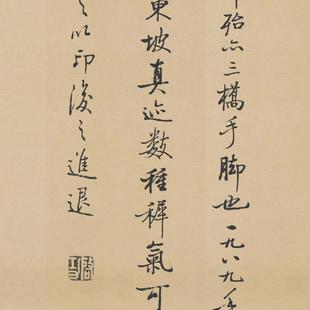 殆六三橋手脚也一九八九年
東坡真迹数種稺氣可
以印後之進退